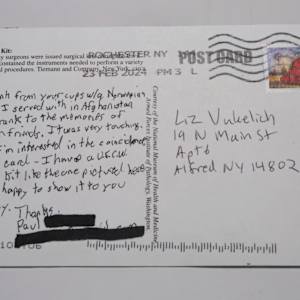 Kit:
y surgeons were issued surgical
contained the instruments needed to perform a variety
l procedures. Tiemann and Company, New York, circa
ROCHESTER NY
23 FEB 2024 PM 3 L
POST CARD
from your cups w/a Norwegian
I served with in Afghanistan
to the memories of
friends. It was very touching.
I'm interested in the coincidence
card - I have a
kit like the one pictured here
happy to show it to you
Thanks,
Paul
Courtesy of the National Museum of Health and Medicine,
Armed Forces Institute of Pathology, Washington,
Liz Vukelich
19 N Main St
Apt 6
Alfred NY 14802